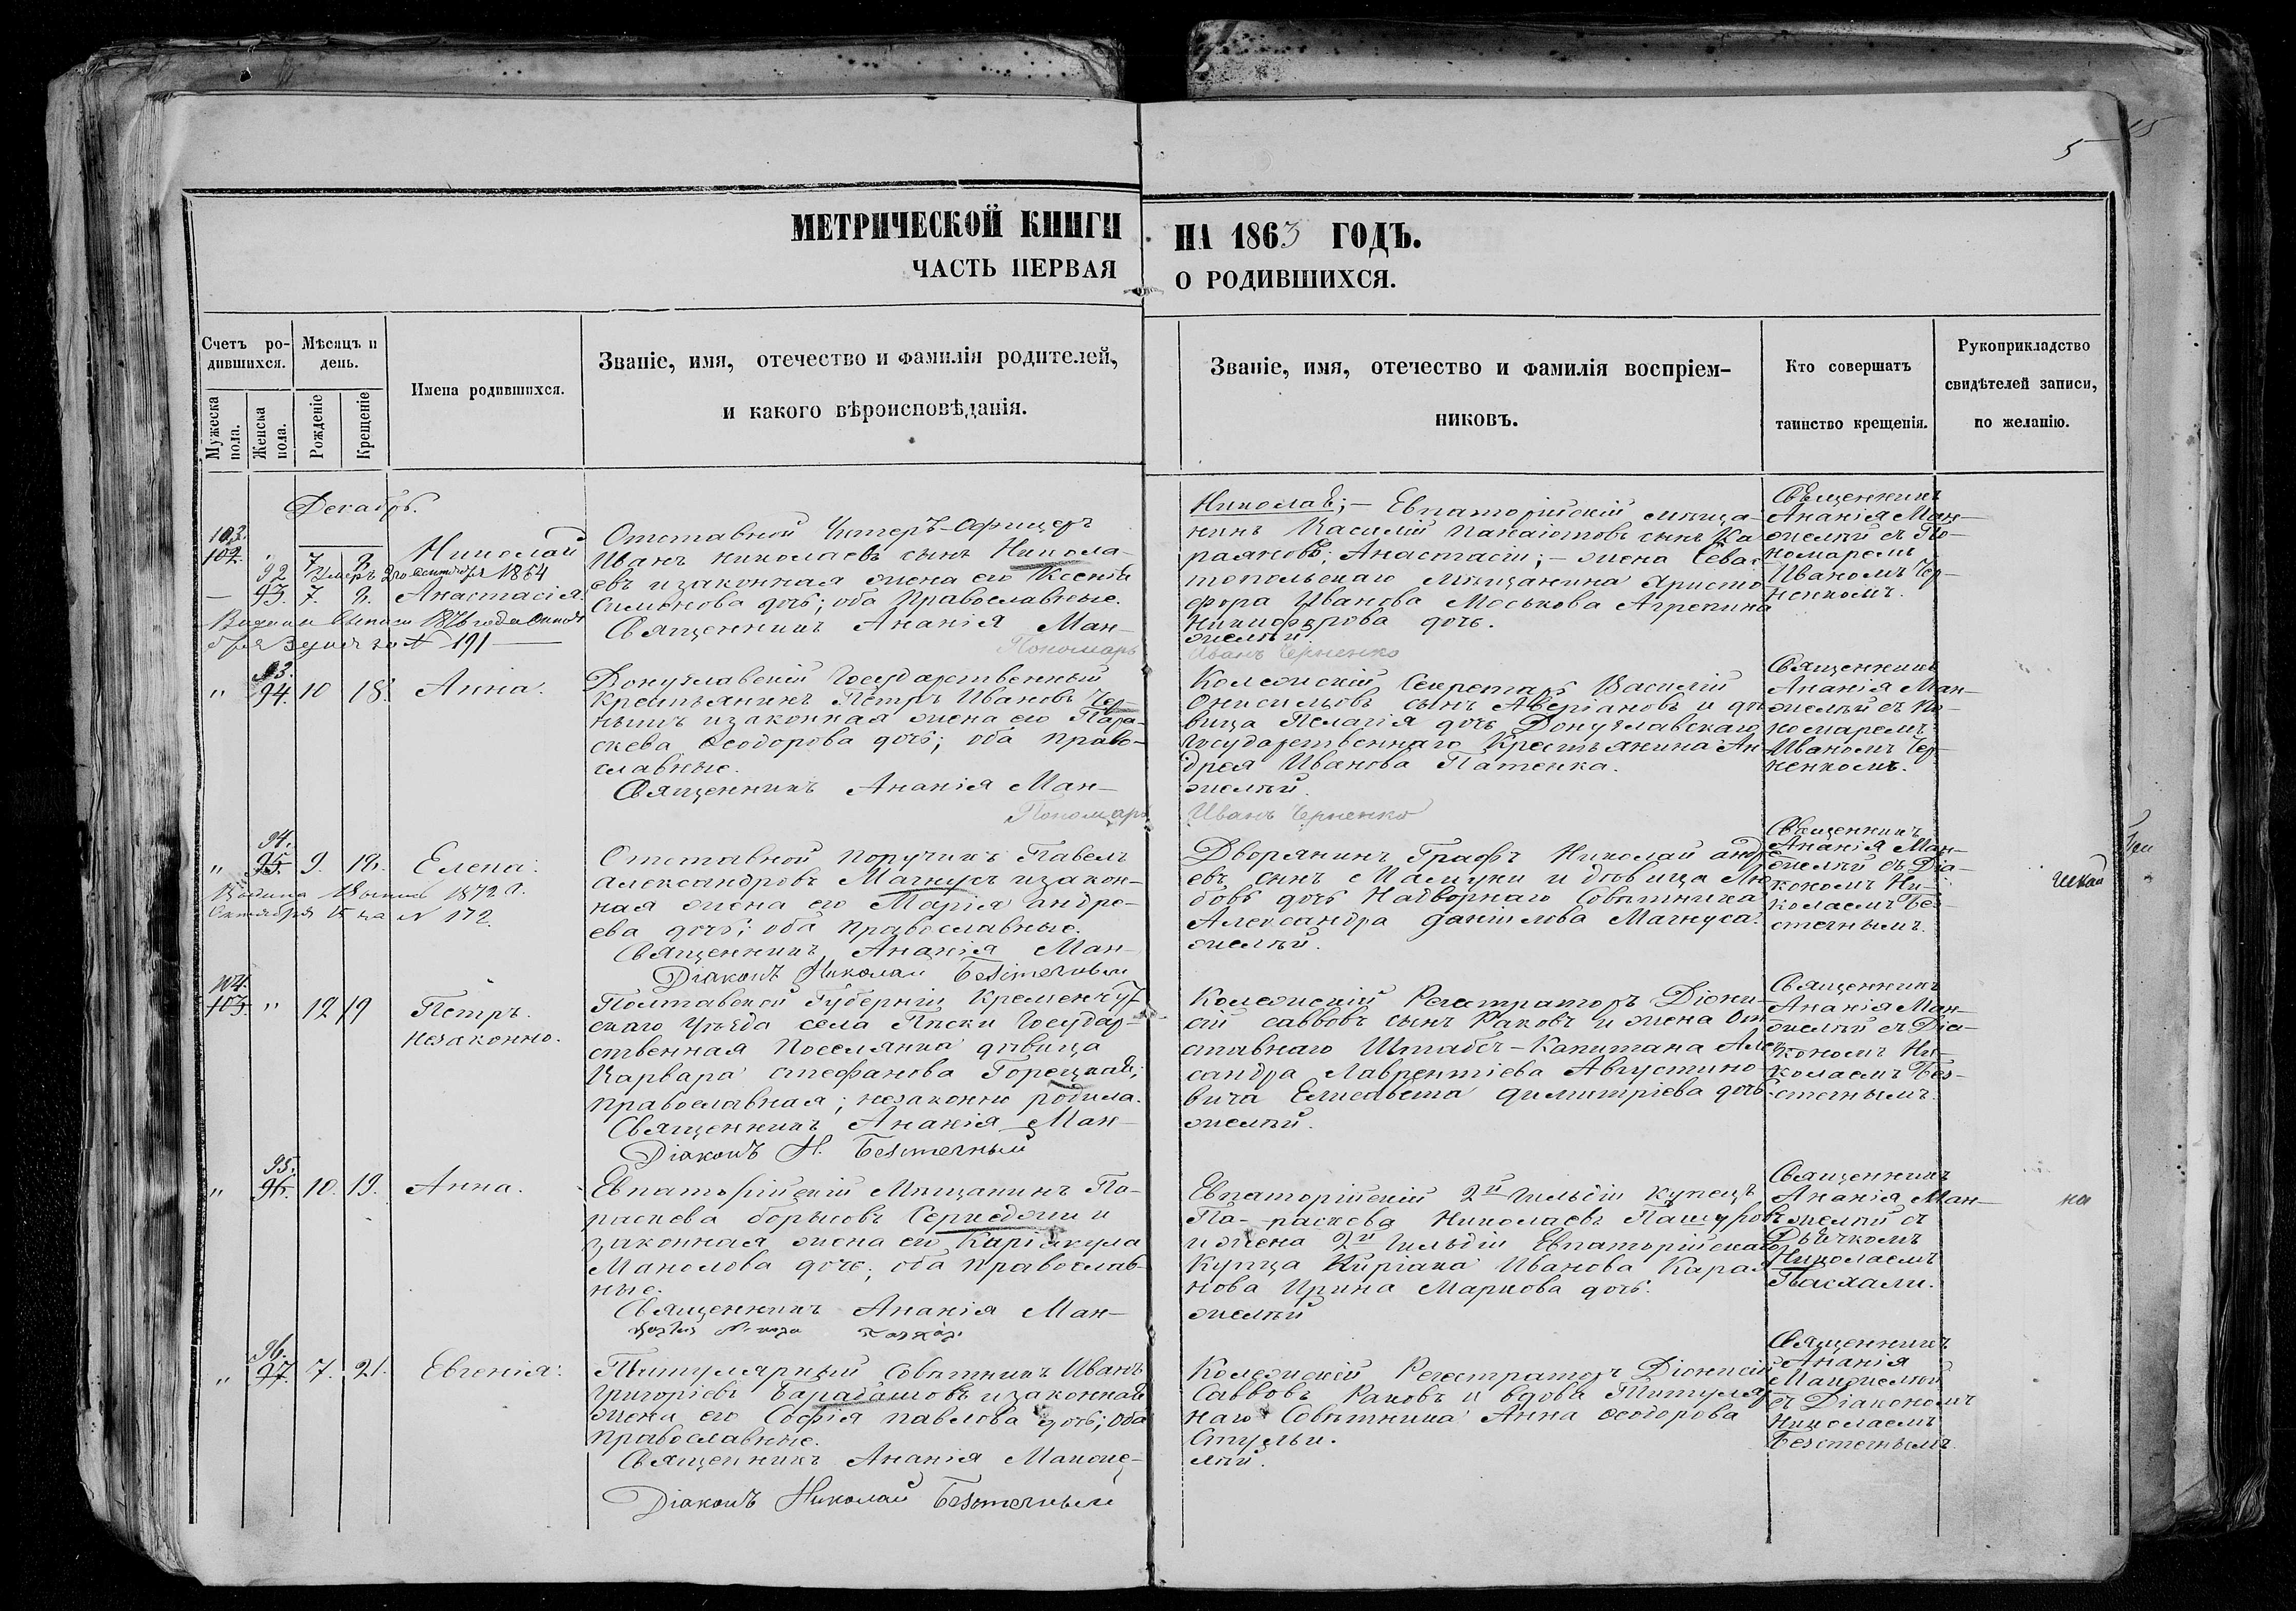 5
15
МЕТРИЧЕСКОЙ КНИГИ НА 1863 ГОДЪ.
ЧАСТЬ ПЕРВАЯ О РОДИВШИХСЯ.
Счетъ ро-
дившихся.
Мужеска
пола.
Женска
пола.
Мѣсяцъ и
день.
Рожденіе
Крещеніе
Имена родившихся.
Званіе, имя, отечество и фамилія родителей,
и какого вѣроисповѣданія.
Званіе, имя, отечество и фамилія воспріем-
никовъ.
Кто совершатъ
таинство крещенія.
Рукоприкладство
свидѣтелей записи,
по желанію.
Декабрь.
103.
102. " 7. 8. Николай
Умеръ 1864
92
— 93. 7. 8. Анастасія.
1876 года
за № 191
Отставной Унтеръ-Офицеръ
Иванъ Николаевъ сынъ Никола-
евъ и законная жена его Ксенія
Симонова дочь; оба Православные.
Священникъ Ананія Ман-
Пономарь
Николаѣ; — Евпаторійскій мѣща-
нинъ Василій Панаіотовъ сынъ Ка-
раяновъ; Анастасіи; — жена Севас-
топольскаго Мѣщанина Христо
фора Иванова Моськова Агрепина
Никифорова дочь.
желѣй
Иванъ Черненко
Священникъ
Ананія Ман-
желѣй съ По-
номаремъ
Иваномъ Чер-
ненкомъ.
93.
" 94. 10 18. Анна.
Донузлавскій Государственный
Крестьянинъ Петръ Ивановъ Чер-
нышъ и законная жена его Пара-
скева Ѳеодорова дочь; оба право-
славные.
Священникъ Ананія Ман-
Пономарь
Колежскій Секретарь Василій
Онисимовъ сынъ Аверіановъ и дѣ-
вица Пелагія дочь Донузлавскаго
Государственнаго Крестьянина Ан-
дрея Иванова Патенка.
желѣй.
Иванъ Черненко
Священникъ
Ананія Ман-
желѣй съ По-
номаремъ
Иваномъ Чер-
ненкомъ.
94.
" 95. 9. 18. Елена.
1872 г.
Октября за № 172.
Отставной Поручикъ Павелъ
Александровъ Магнусъ и закон-
ная жена его Марія Андре-
ева дочь; оба Православные.
Священникъ Ананія Ман-
Діаконъ Николай Безтечный
Дворянинъ Графъ Николай Андре
евъ сынъ Мамуки и дѣвица Лю
бовь дочь Надворнаго Совѣтника
Александра Данилова Магнуса.
желѣй.
Священникъ
Ананія Ман-
желѣй съ Діа-
кономъ Ни-
колаемъ Без-
стечнымъ.
104.
103. " 12 19 Петръ.
незаконно.
Полтавской Губерніи Кременчуг-
скаго Уѣзда села Пески Государ-
ственная Поселянка дѣвица
Варвара Стефанова Горецкая;
Православная; незаконно родила.
Священникъ Ананія Ман-
Діаконъ Н. Безтечный
Колежскій Регестраторъ Діони-
сій Саввовъ сынъ Раковъ и жена От-
ставнаго Штабсъ-Капитана Алек
сандра Лаврентіева Августино-
вича Елисавета Димитріева дочь.
желѣй.
Священникъ
Ананія Ман-
желѣй съ Діа-
кономъ Ни-
колаемъ Без-
стечнымъ.
95.
" 96. 10. 19. Анна.
Евпаторійскій Мѣщанинъ Па-
раскева Борисовъ и
законная жена его Каріакула
Манолова дочь; оба православ-
ные.
Священникъ Ананія Ман-
Евпаторійскій 2й Гильдіи купецъ
Па-раскева Николаевъ Пашуровъ
и жена 2й Гильдіи Евпаторійскаго
Купца Киріака Иванова Карая
нова Ирина Маркова дочь.
желѣй
Священникъ
Ананія Ман-
желѣй съ
Дьячкомъ
Николаемъ
Пасхали.
96.
" 97. 7. 21. Евгенія.
Титулярный Совѣтникъ Иванъ
Григоріевъ Барабашовъ и законная
жена его Софія Павлова дочь; оба
православные.
Священникъ Ананія Манже-
Діаконъ Николай Безтечный
Колежскій Регестраторъ Діонисій
Саввовъ Раковъ и вдова Титуляр
наго Совѣтника Анна Ѳеодорова
лѣй.
Священникъ
Ананія
Манжелѣй
съ Діакономъ
Николаемъ
Безстечнымъ.